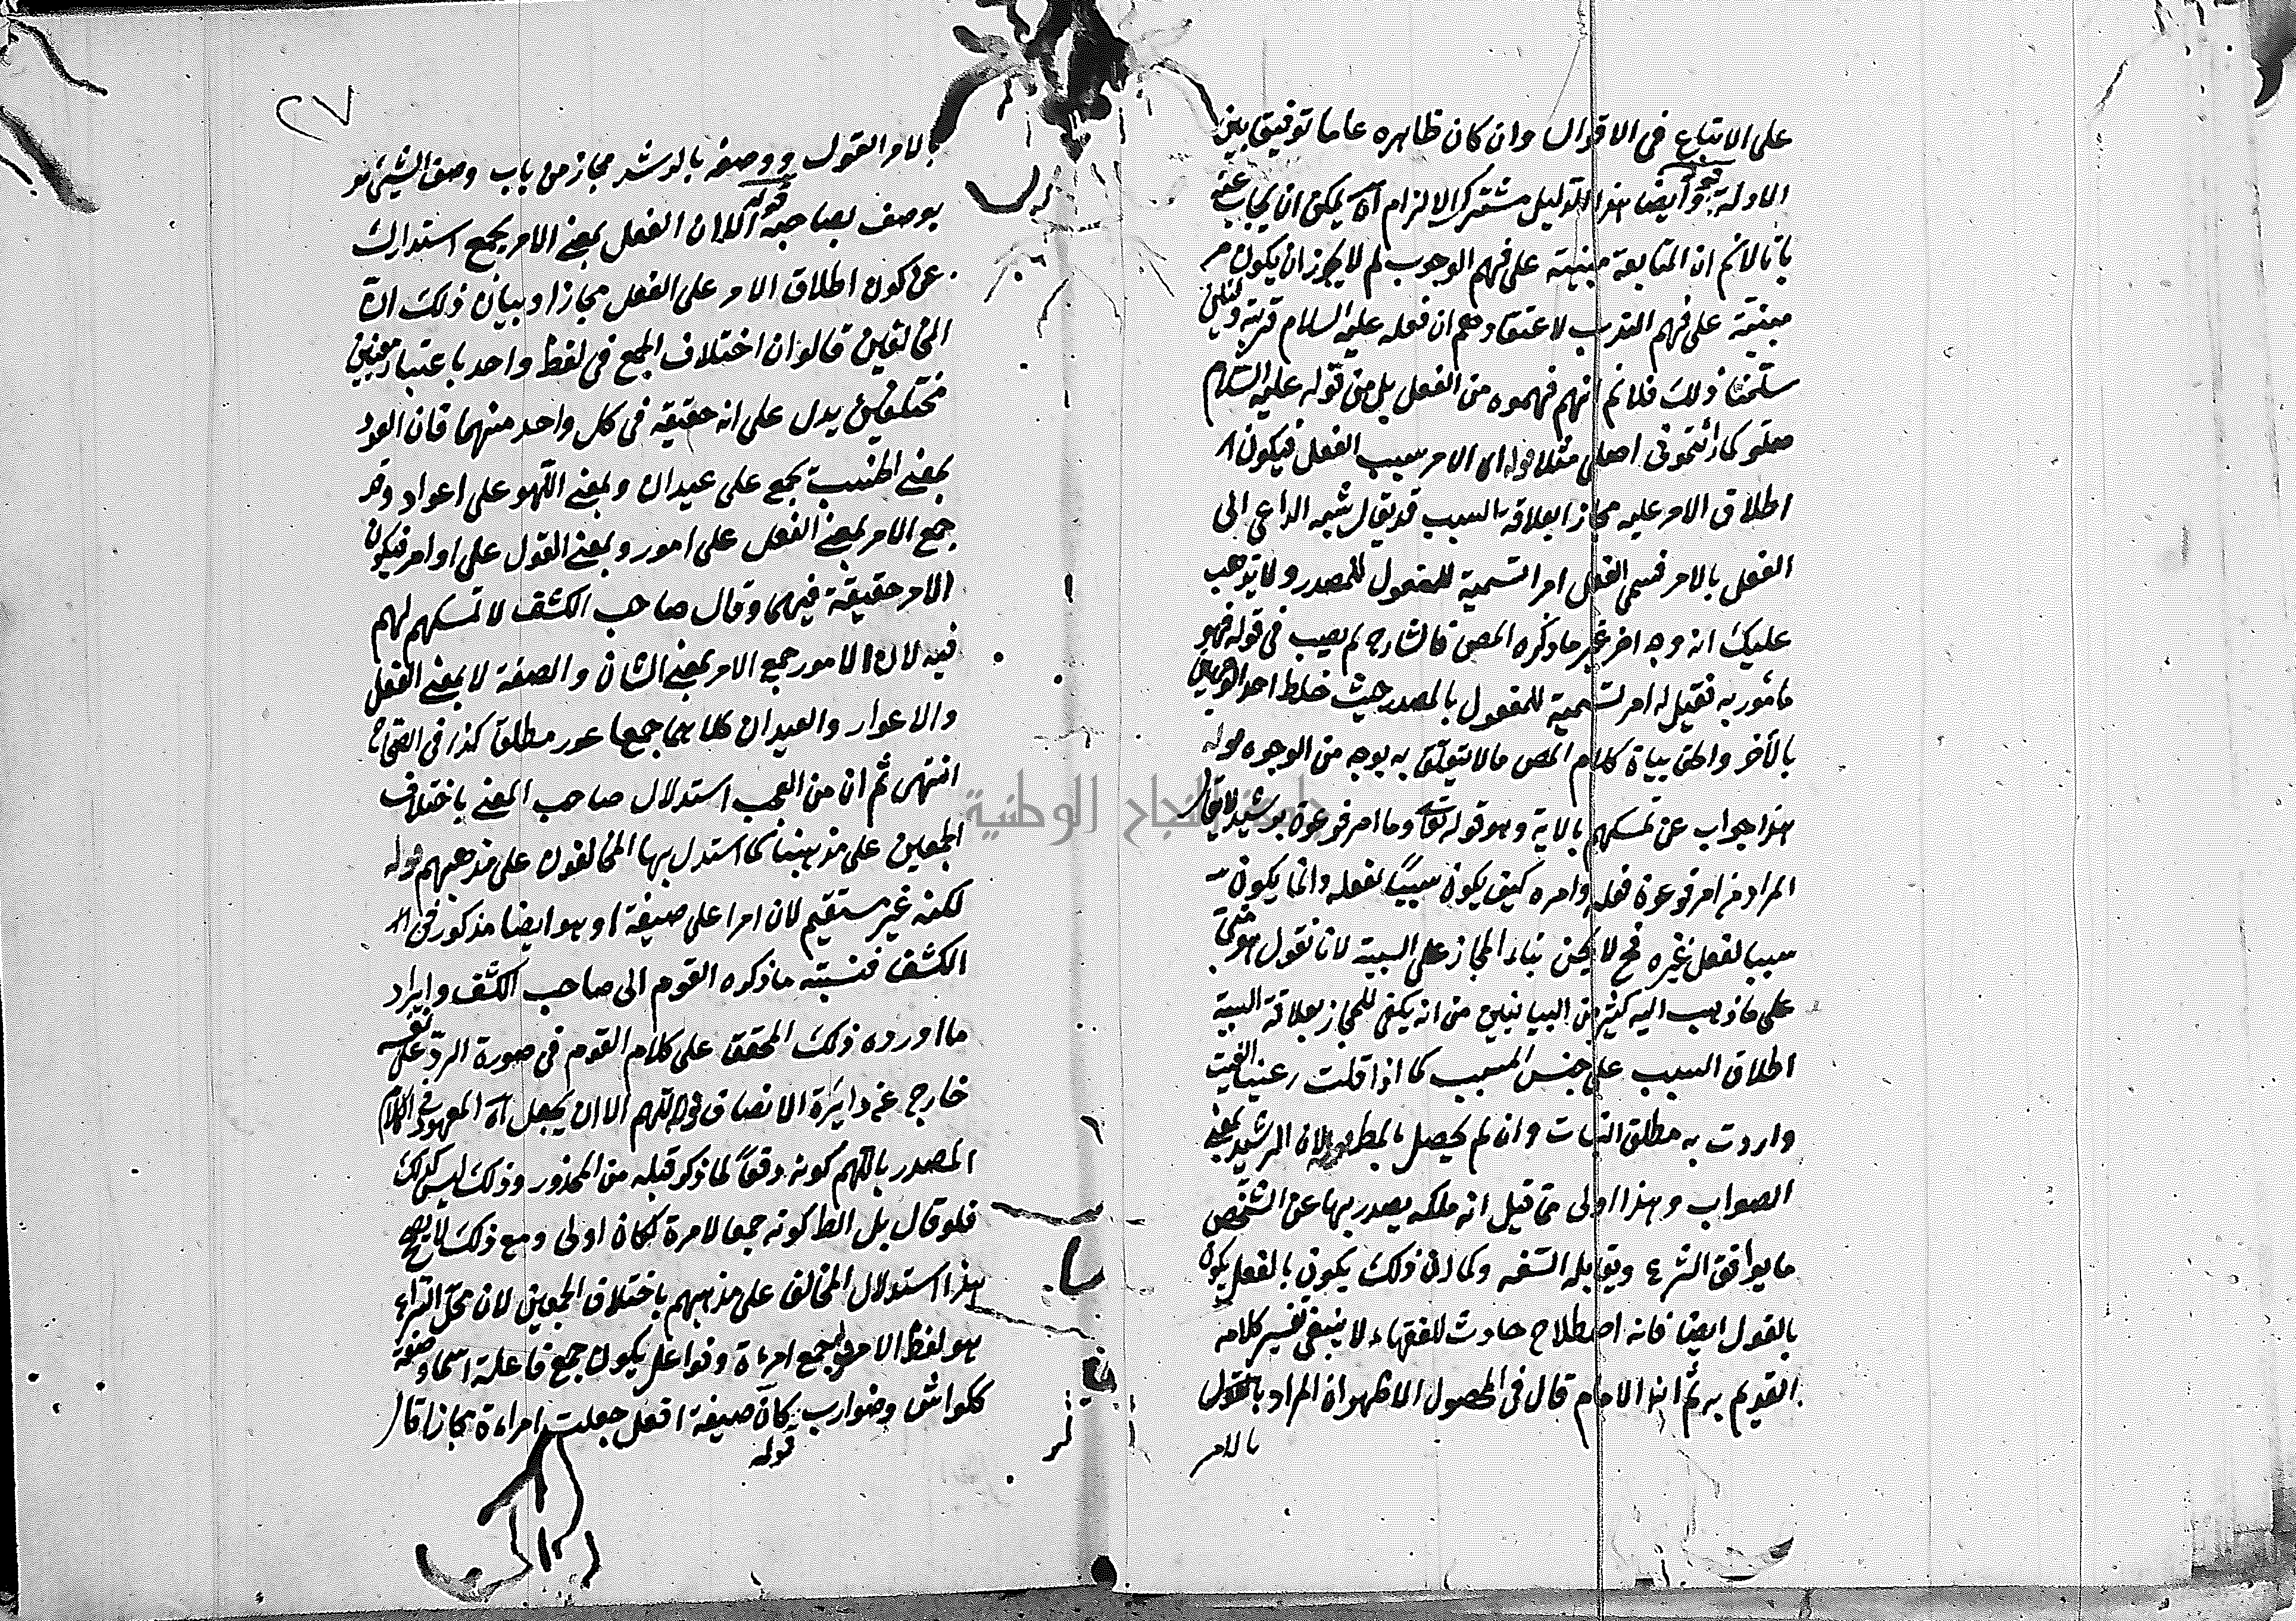 على الاتباع فى الاقوال وان كان ظاهره عاما توفيق بين
الادلة قوله وأيضا هذا الدليل مشترك الالزام آه يمكن ان يجاب عنه
بانا لانم ان المتابعة مبنية على فهم الوجوب لم لا يجوز ان يكون
مبنية على فهم الندب لاعتقادهم ان فعله عليه السلام قربة ولئن
سلمنا ذلك فلانم انهم فهموه من الفعل بل من قوله عليه السلام
صلو كما رأيتمونى اصلى مثلا قوله ان الامر سبب الفعل فيكون
اطلاق الامر عليه مجازا بعلاقة السبب قد يقال شبه الداعى الى
الفعل بالامر فسمى الفعل امرا تسمية للمفعول للمصدر ولا يذهب
عليك انه وجه اخر غير ما ذكره المص فالشارح لم يصب فى قوله فهو
مأمور به فقيل له امر تسمية للمفعول بالمصدر حيث خلط احد الوجهين
بالأخر والحق ببيان كلام المص مالا يتعلق به بوجه من الوجوه قوله
هذا جواب عن تمسكهم بالاية وهو قوله تعالى وما امر فرعون برشيد لا يقال
المراد من امر فرعون فعله وامره كيف يكون سببا لفعله وانما يكون
سببا لفعل غيره فح لا يحسن بناء المجاز على السببية لانا نقول هو مبنى
على ما ذهب اليه كثير من البيانيين من انه يكفى للمجاز بعلاقة السببية
اطلاق السبب على جنس المسبب كما اذا قلت رعينا الغيث
واردت به مطلق النبات وان لم يحصل بالمطر قوله لان الرشيد بمعنى
الصواب وهذا اولى مما قيل انه ملكه يصدر بها عن الشخص
ما يوافق الشرع ويقابله السفه وكما ان ذلك يكون بالفعل يكون
بالقول ايضا فانه اصطلاح حادث للفقهاء لا ينبغى تفسير كلامه
القديم به ثم ان الامام قال فى المحصول الاظهر ان المراد بالقول
بالامر
٢٧
بالامر القول ووصفه بالرشد مجاز من باب وصف الشيئ
بوصف صاحبه قوله الا ان الفعل بمعنى الامر يجمع استدراك
عن كون اطلاق الامر على الفعل مجازا وبيان ذلك ان
المخالفين قالوا ان اختلاف الجمع فى لفظ واحد باعتبار معنيين
مختلفين يدل على انه حقيقة فى كل واحد منهما فان العود
بمعنى الخشب يجمع على عيدان وبمعنى اللهو على اعواد وقد
جمع الامر بمعنى الفعل على امور وبمعنى القول على اوامر فيكون
الامر حقيقة فيهما وقال صاحب الكشف لا تمسكهم لهم
فيه لان الامور جمع الامر بمعنى الشان والصفة لا بمعنى الفعل
والاعواد والعيدان كلاهما جمعا عود مطلقا كذا فى الصحاح
انتهى ثم ان من العجب استدلال صاحب المغنى باختلاف
الجمعين على مذهبنا كما استدل بها المخالفون على مذهبهم قوله
لكنه غير مستقيم لان امرا على صيغة اه وهو ايضا مذكور فى
الكشف فنسبته ما ذكره القوم الى صاحب الكشف وايراد
ما اورده ذلك المحقق على كلام القوم فى صورة الرد على نفسه
خارج عن دايرة الانصاف قوله اللهم الا ان يجعل آه المعهود فى الكلام
المصدر باللهم كونه دفعا لما ذكر قبله من المحذور وذلك ليس كذلك
فلو قال بل الط كونه جمعا لامرة لكان اولى ومع ذلك لا يصح
هذا استدلال المخالف على مذهبهم باختلاف الجمعين لان محل النزاع
هو لفظ الامر قوله جمع امرءة وفواعل يكون جمع فاعلة اسما وصفة
ككواش وضوارب قوله كان صيغة افعل جعلت امراءة مجازا قال
جامعة النجاح الوطنية